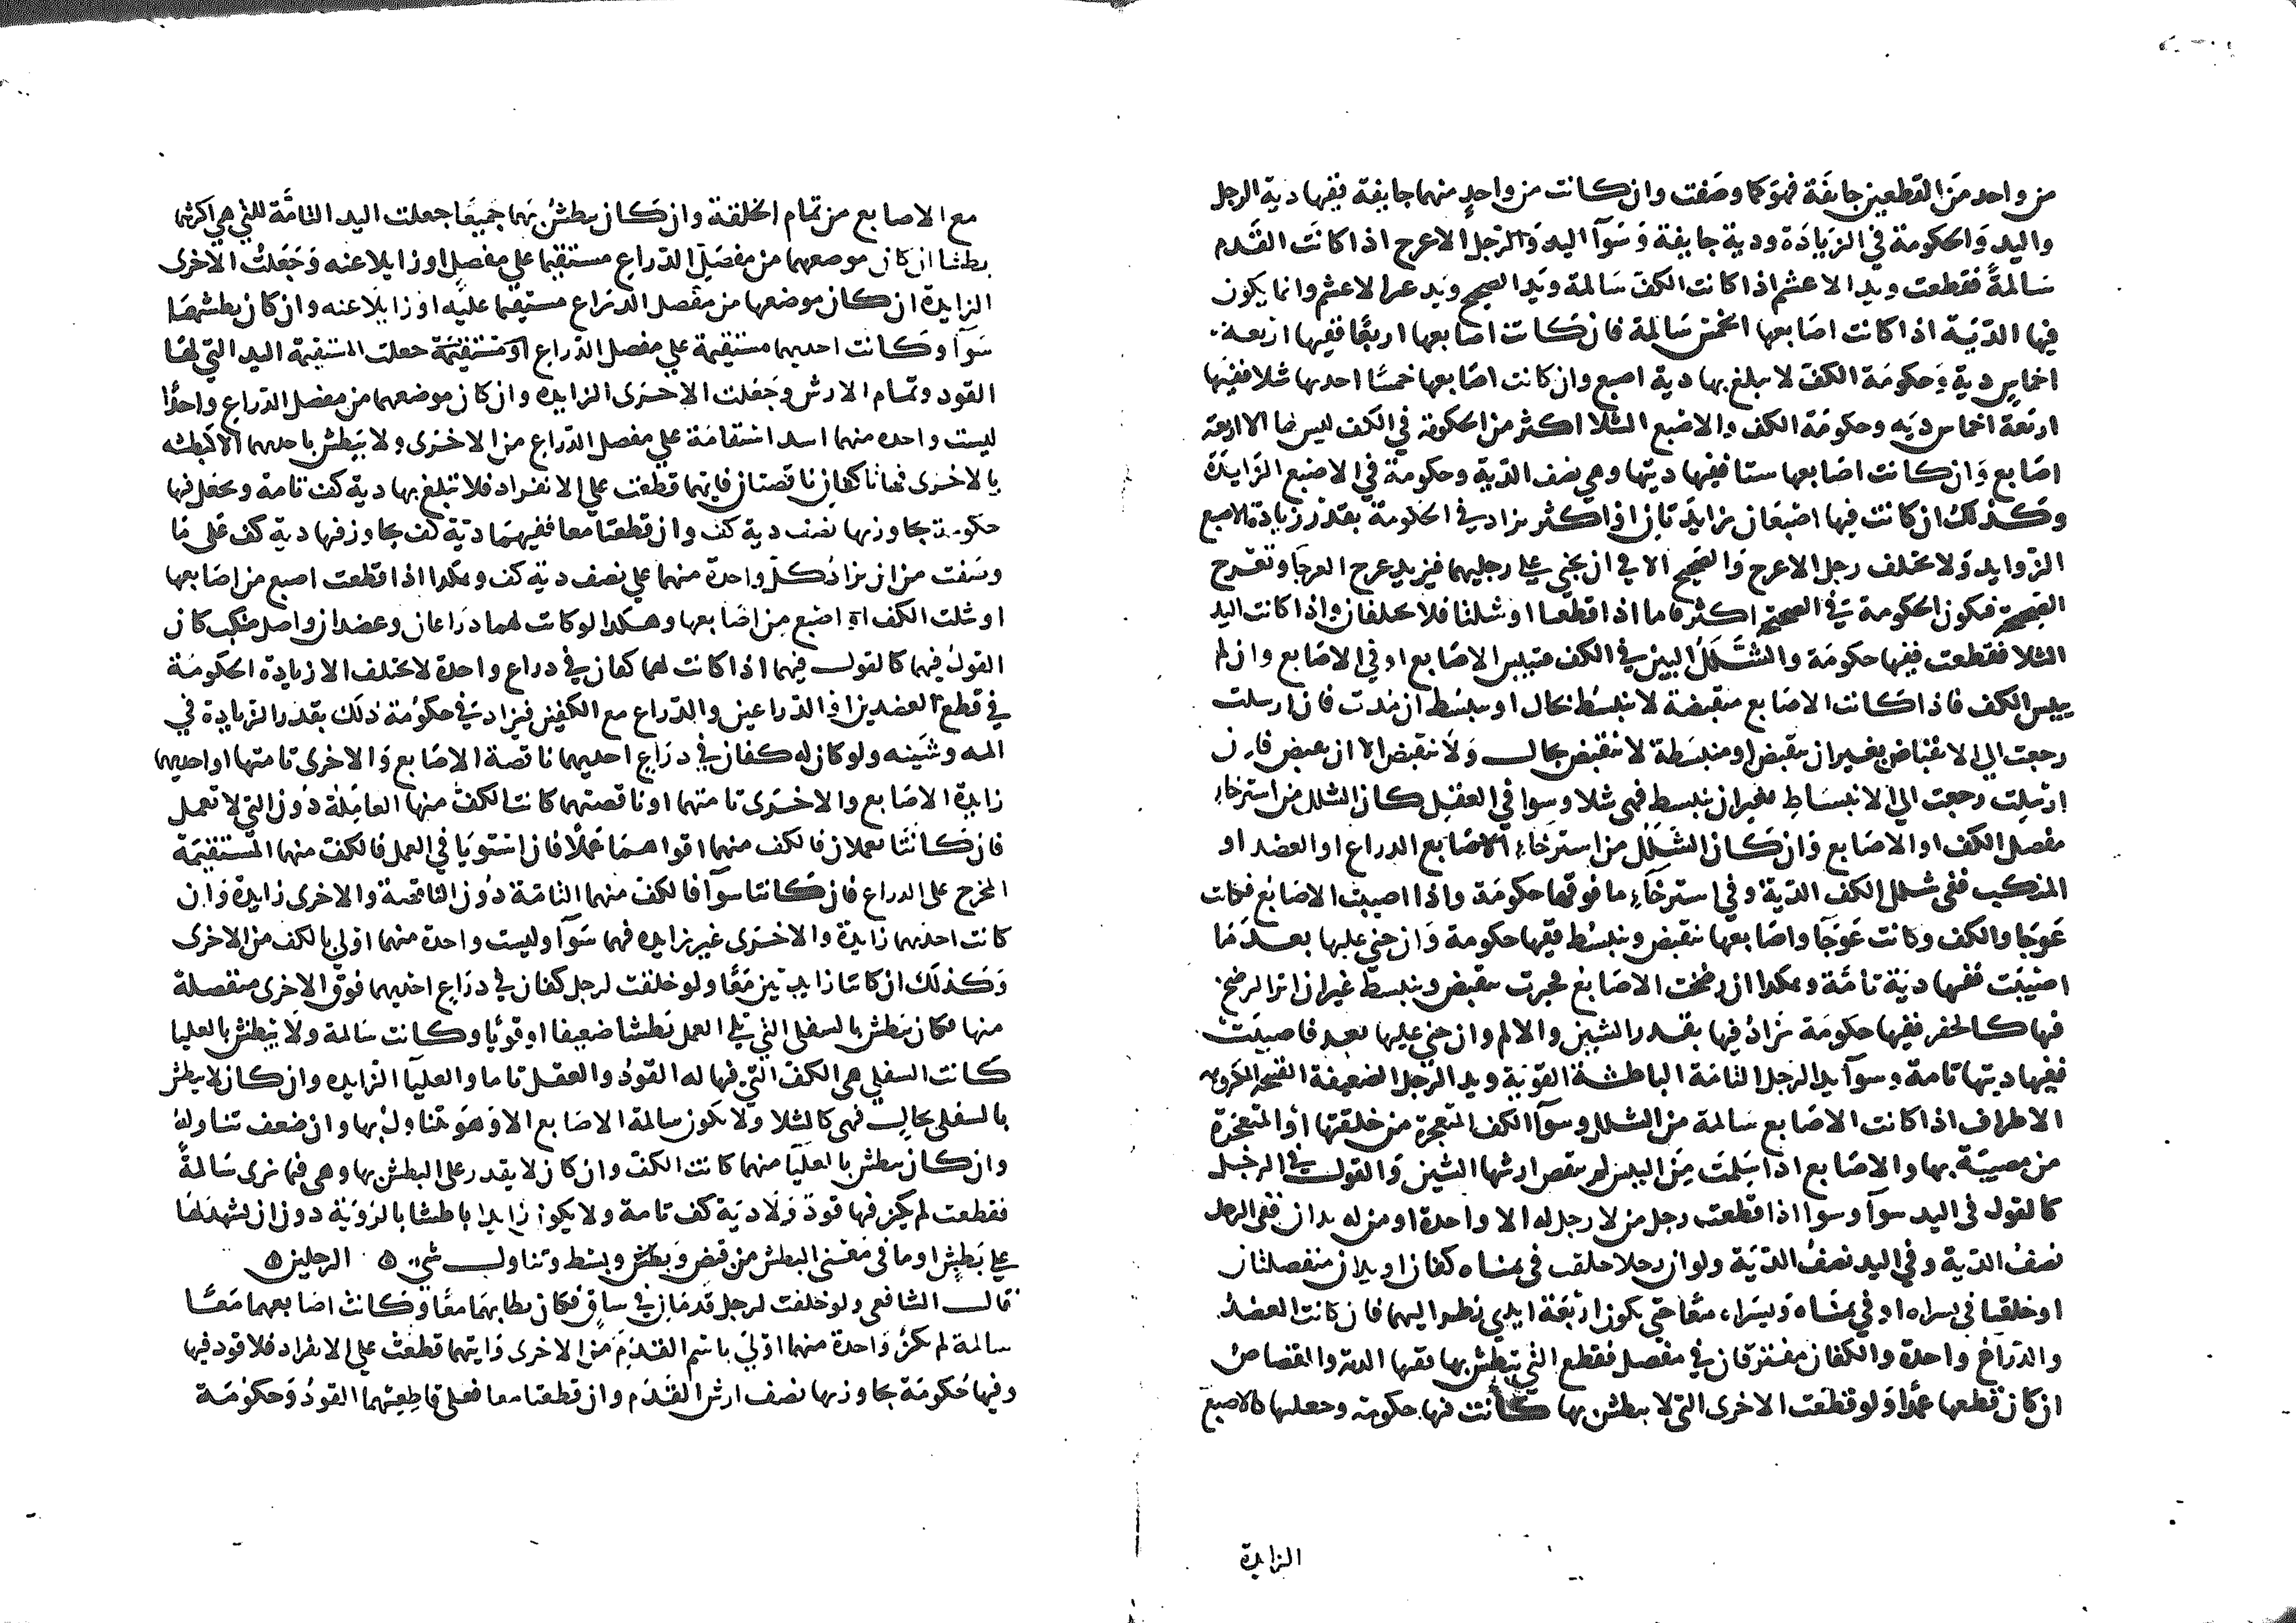 من واحد من القطعين جايفة فهو كما وصفت وان كانت من واحدٍ منهما جايفة ففيها دية الرجل
واليد والحكومة في الزيادة ودية جايفة وسوآ اليد والرجل الاعرج اذا كانت القدم
سالمةً فقطعت ويد الاعشم اذا كانت الكف سالمة ويد الصحيح ويد غير الاعشم وانما يكون
فيها الدّية اذا كانت اصابعها الخمس سالمة فان كانت اصابعها اربعًا ففيها اربعة
اخماس دية وحكومة الكف لا يبلغ بها دية اصبع وان كانت اصابعها خمسًا احدها شلا ففيها
اربعة اخماس ديه وحكومة الكف والاصبع الشلا اكثر من الحكومة في الكف ليس لها الا اربعة
اصابع وان كانت اصابعها ستا ففيها ديتها وهي نصف الدّية وحكومة في الاصبع الزايدة
وكذلك ان كانت فيها اصبعان زايدتان او اكثر يزاد في الحكومة بقدر زيادة الاصبع
الزوايد ولا تختلف رجل الاعرج والصحيح الا في ان يجنى على رجليهما فيزيد عرج العرجا وتعرج
الصحيحة فتكون الحكومة في الصحيح اكثر فاما اذا قطعتا او شلتا فلا يختلفان واذا كانت اليد
الشلا فقطعت ففيها حكومة والشلل اليبس في الكف فتيبس الاصابع او في الاصابع وان لم
ييبس الكف فاذا كانت الاصابع منقبضة لا تنبسط بحال او تنبسط ان مدت فان ارسلت
رجعت الى الانقباض بغير ان تنقبض او منبسطة لا تنقبض بحال ولا تنقبض الا ان تقبض فان
ارسلت رجعت الى الانبساط بغير ان تنبسط فهي شلا وسوا في العقل كان الشلل من استرخاء
مفصل الكف او الاصابع وان كان الشلل من استرخاء الاصابع الدراع او العضد او
المنكب ففي شلل الكف الدّية وفي استرخآء ما فوقها حكومة واذا اصيبت الاصابع فكانت
عوجا والكف وكانت عوجآ واصابعها تنقبض وتنبسط ففيها حكومة وان جني عليها بعد ما
اصيبت ففيها دية تامّة وهكذا ان رضخت الاصابع فجبرت تنقبض وتنبسط غير ان اثر الرضخ
فيها كالحفر ففيها حكومة تزاد فيها بقدر الشين والالم وان جني عليها بعد فاصيبت
ففيها ديتها تامة وسوآ يد الرجل التامة الباطشة القوية ويد الرجل الضعيفة القبيحة المكروهه
الاطراف اذا كانت الاصابع سالمة من الشلل وسوآ الكف المتعجرة من خلقتها او المتعجرة
من مصيبة بها والاصابع اذا سلمت من اليبس لم ينقص ارشها الشين والقول في الرجل
كالقول في اليد سوآ وسوا اذا قطعت رجل من لا رجل له الا واحدة او من له يدان ففي الرجل
نصف الدية وفي اليد نصف الدّية ولو ان رجلا خلقت في يمناه كفان او يدان منفصلتان
او خلقتا في يسراه او في يمناه ويسراه معا حتى يكون اربعة ايدي نظر اليهما فان كانت العضد
والدّراع واحدة والكفان مفترقان في مفصل فقطع التي يبطش بها ففيها الدية والقصاص
ان كان قطعها عمدا ولو قطعت الاخرى التي لا يبطش بها كانت فيها حكومة وجعلها كالاصبع
الزايدة
مع الاصابع من تمام الخلقة وان كان يبطش بهما جميعا جعلت اليد التامّة للتي هي اكثرهما
بطشا ان كان موضعهما من مفصل الدّراع مستقيما على مفصل او زايلا عنه وجعلت الاخرى
الزايدة ان كان موضعها من مفصل الدراع مستقيما عليه او زايلا عنه وان كان بطشهما
سوآ وكانت احديهما مستقيمة على مفصل الدّراع جعلت المستقيمة اليد التي لها
القود وتمام الارش وجعلت الاخرى الزايده وان كان موضعهما من مفصل الدّراع واحدًا
ليست واحده منهما اسد استقامة على مفصل الدّراع من الاخرى ولا يبطش باحديهما الا كبطشه
بالاخرى فهاتان كفان ناقصتان فايتهما قطعت على الانفراد فلا تبلغ بها دية كف تامة ويجعل فيها
حكومة يجاوز بها نصف دية كف وان قطعتا معا ففيهما دية كف يجاوز فيها دية كف على ما
وصفت من ان يزاد كل واحدة منهما على نصف دية كف وهكذا اذا قطعت اصبع من اصابعها
او شلت الكف او اصبع من اصابعها وهكذا لو كانت لهما دراعان وعضدان واصل منكب كان
القول فيهما كالقول فيهما اذا كانت لهما كفان في دراع واحدة لا يختلف الا زيادة الحكومة
في قطع العضدين او الدّراعين والدّراع مع الكفين فيزاد في حكومة ذلك بقدر الزيادة في
المه وشينه ولو كان له كفان في دراع احديهما ناقصة الاصابع والاخرى تامتها او احديهما
زايدة الاصابع والاخرى تامتهما او ناقصتهما كانت الكف منهما العاملة دون التي لا تعمل
فان كانتا يعملان فالكف منهما اقواهما عملا فان استويا في العمل فالكف منهما المستقيمة
المخرج على الدراع فان كانتا سوآ فالكف منهما التامة دون الناقصة والاخرى زايدة وان
كانت احديهما زايدة والاخرى غير زايده فهما سوآ وليست واحدة منهما اولى بالكف من الاخرى
وكذلك ان كانتا زايدتين معًا ولو خلقت لرجل كفان في دراع احديهما فوق الاخرى منفصلة
منها فكان يبطش بالسفلى التي تلي العمل بطشا ضعيفا او قويًا وكانت سالمة ولا يبطش بالعليا
كانت السفلى هي الكف التي فيها له القود والعقل تاما والعليآ الزايده وان كان لا يبطش
بالسفلى بحال فهي كالشلا ولا تكون سالمة الاصابع الا وهو يتناول بها وان ضعف تناوله
وان كان يبطش بالعليا منهما كانت الكف وان كان لا يقدر على البطش بها وهي فيما نرى سالمةً
فقطعت لم يكن فيها قود ولا دية كف تامة ولا يكون زايدا باطشا بالرؤية دون ان يشهد لها
على بطش او ما في معنى البطش من قبض وبطش وبسط وتناول شي ۞ الرجلين ۞
قال الشافعي ولو خلقت لرجل قدمان في ساق فكان يطا بهما معًا وكانت اصابعهما معًا
سالمة لم تكن واحدة منهما اولى باسم القدم من الاخرى وايتهما قطعت على الانفراد فلا قود فيها
وفيها حكومة يجاوز بها نصف ارش القدم وان قطعتا معا فعلى قاطعهما القود وحكومة